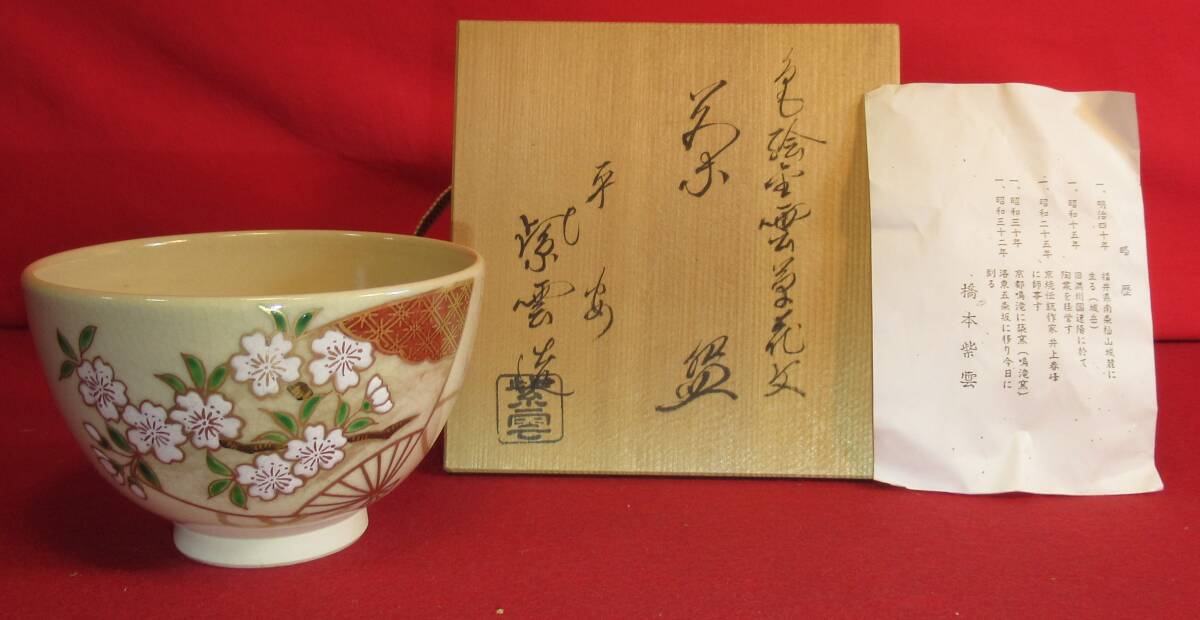 色絵金雲草花文
茶盌
平安
紫雲造
紫雲
略歴
一、明治四十年 福井県南条杣山城麓に
生る(城岳)
一、昭和十五年 旧満州国連陽に於て
陶業を経営す
一、昭和二十五年 京焼伝統作家井上春峰
に師事す
一、昭和三十年 京都鳴滝に築窯(鳴滝窯)
一、昭和三十二年 洛東五条坂に移り今日に
到る
橋本紫雲